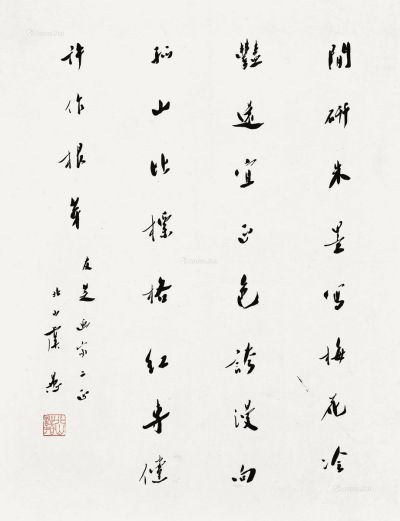 閒研朱墨寫梅花冷
艷還宜正色誇漫向
孤山比標格紅專健
許作根芽
友芝画家之正
北山